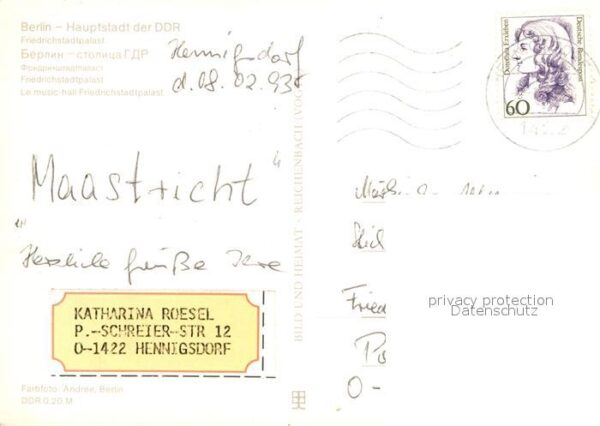 Berlin – Hauptstadt der DDR
Friedrichstadtpalast
Берлин – столица ГДР
Фридрихштадтпаласт
Friedrichstadtpalast
Le music-hall Friedrichstadtpalast
Hennigsdorf
d. 08. 02. 93
"Maastricht"
Herzliche Grüße Ihre
KATHARINA ROESEL
P.-SCHREIER-STR 12
O-1422 HENNIGSDORF
Farbfoto: Andrée, Berlin
DDR 0,20 M
BILD UND HEIMAT · REICHENBACH
Dorothea Erxleben
Deutsche Bundespost
60
Fried
O-
privacy protection
Datenschutz